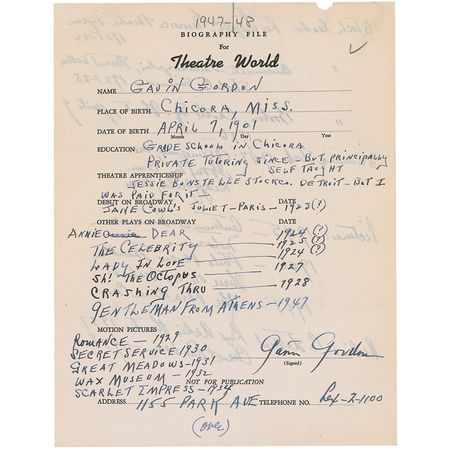 1947-48
BIOGRAPHY FILE
For
Theatre World
NAME GAVIN GORDON
PLACE OF BIRTH CHICORA, MISS.
DATE OF BIRTH APRIL 7, 1901
Month Day Year
EDUCATION GRADE SCHOOL IN CHICORA
PRIVATE TUTORING SINCE - BUT PRINCIPALLY
SELF TAUGHT
THEATRE APPRENTICESHIP
JESSIE BONSTELLE STOCK CO. DETROIT - BUT I
WAS PAID FOR IT!
DEBUT ON BROADWAY DATE
JANE COWL'S JULIET - PARIS - 1923(?)
OTHER PLAYS ON BROADWAY DATE
ANNIE DEAR 1924 (?)
THE CELEBRITY 1925 (?)
LADY IN LOVE 1924 (?)
SH! THE OCTOPUS 1927
CRASHING THRU 1928
GENTLEMAN FROM ATHENS - 1947
MOTION PICTURES
ROMANCE - 1929
SECRET SERVICE 1930
GREAT MEADOWS - 1931
Gavin Gordon
(Signed)
WAX MUSEUM - 1932
NOT FOR PUBLICATION
SCARLET IMPRESS - 1934
ADDRESS 1155 PARK AVE TELEPHONE NO. Rex-2-1100
(over)